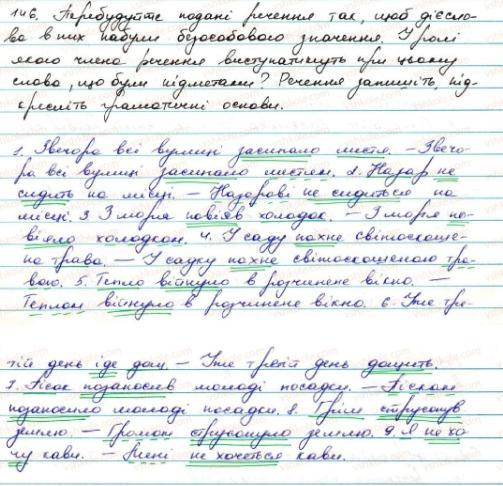 146. Перебудуйте подані речення так, щоб дієсло-
ва в них набули безособового значення. У ролі
якого члена речення виступатимуть при цьому
слова, що були підметами? Речення запишіть, під-
кресліть граматичні основи.
1. Звечора всі вулиці засипало листя. – Звечо-
ра всі вулиці засипало листям. 2. Назар не
сидить на місці. – Назарові не сидиться на
місці. 3. З моря повіяв холодок. – З моря по-
віяло холодком. 4. У саду пахне світлоскоше-
на трава. – У садку пахне світлоскошеною тра-
вою. 5. Тепло війнуло в розчинене вікно. –
Теплом війнуло в розчинене вікно. 6. Уже тре-
тій день іде дощ. – Уже третій день дощить.
7. Пісок позаносив молоді посадки. – Піском
позаносило молоді посадки. 8. Грім струсонув
землю. – Громом струсонуло землю. 9. Я не хо-
чу кави. – Мені не хочеться кави.